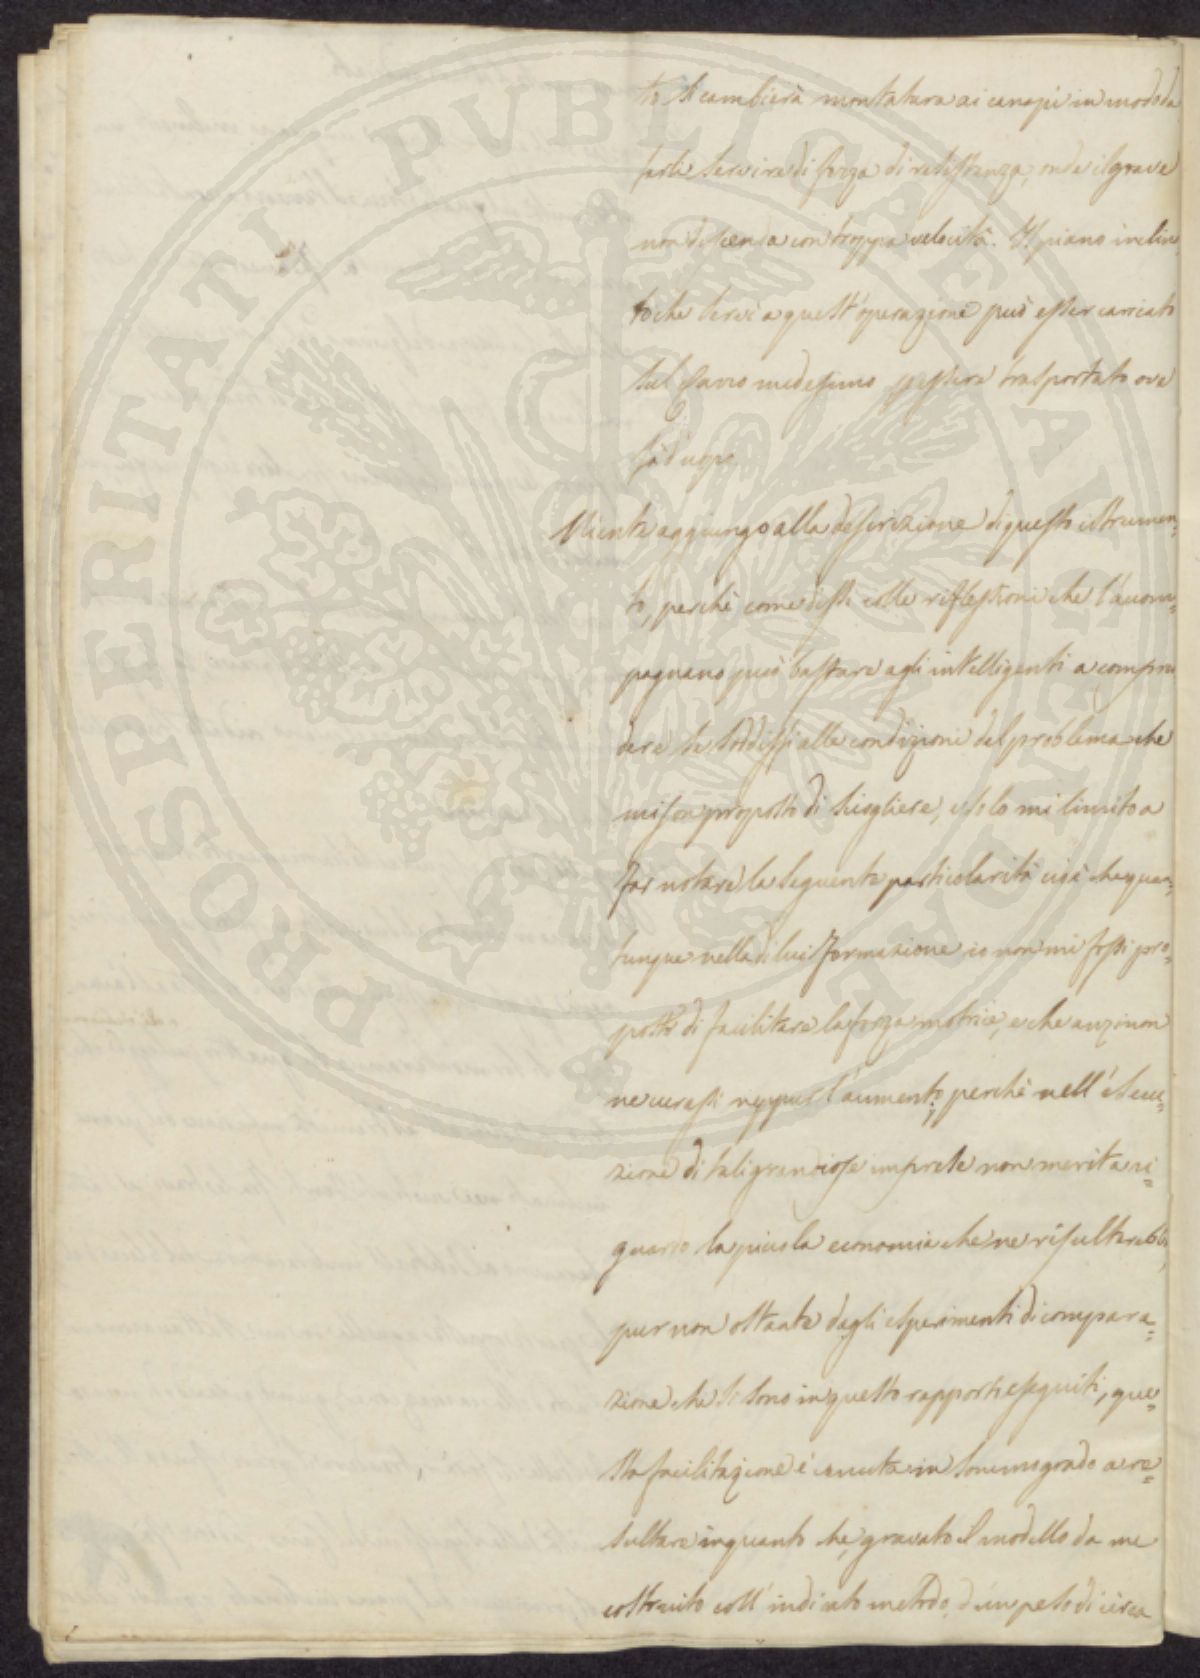 to si cambierà montatura ai canapi in modo da
farli servire di forza di resistenza, onde il grave
non discenda con troppa velocità. Il piano inclin
to che servì a quest'operazione può esser caricato
sul carro medesimo, essere trasportato ove
fa d'uopo.
Niente aggiungo alla descrizione di questo istrumen=
to, perchè come dissi colle riflessioni che l'accom=
pagnano può bastare agli intelligenti a compren
dere se soddisfi alle condizioni del problema che
mi son proposto di sciogliere, e solo mi limito a
far notare la seguente particolarità cioè che quan=
tunque nella di lui formazione io non mi fossi pro=
posto di facilitare la forza motrice, e che anzi non
ne curassi neppur l'aumento; perchè nell'esecu=
zione di tali grandiose imprese non merita ri=
guardo la piccola economia che ne risultarebbe,
pur non ostante dagli esperimenti di compara=
zione che si sono in questo rapporto eseguiti, que=
sta facilitazione è venuta in sommo grado a re=
sultare in quanto che, gravato il modello da me
costruito coll'indicato metodo, d'un peso di circa
PROSPERITATI PUBLICAE AUGENDAE